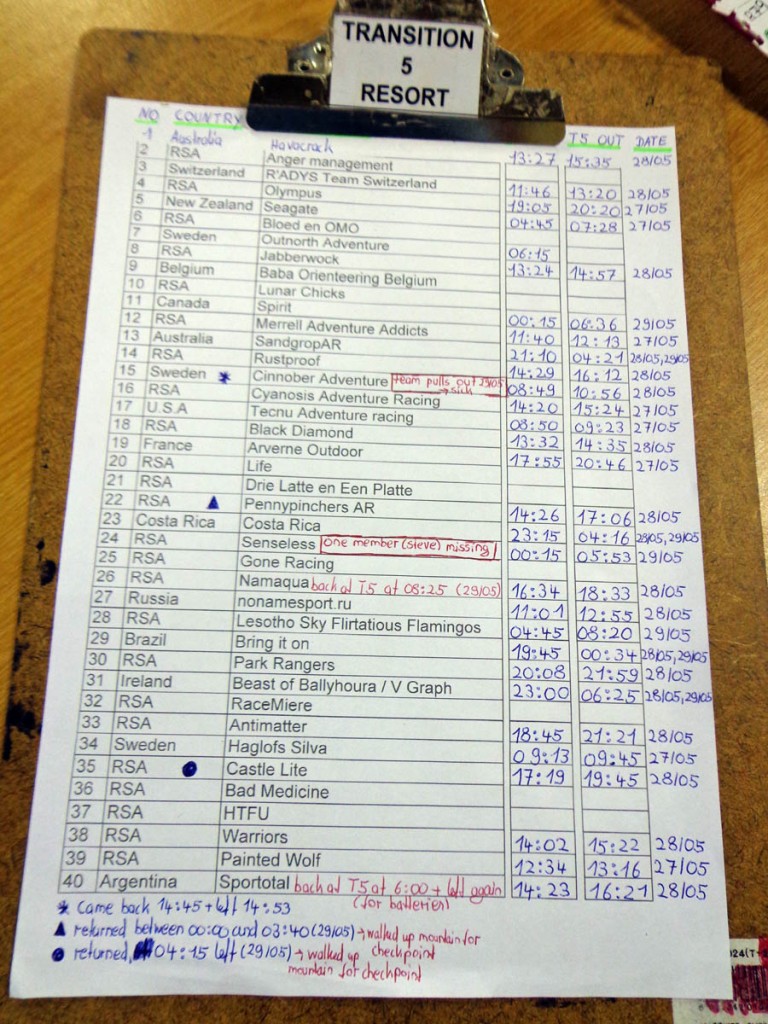 TRANSITION
5
RESORT
NO COUNTRY T5 OUT DATE
1 Australia Havocrack 13:27 15:35 28/05
2 RSA Anger management
3 Switzerland R'ADYS Team Switzerland 11:46 13:20 28/05
4 RSA Olympus 19:05 20:20 27/05
5 New Zealand Seagate 04:45 07:28 27/05
6 RSA Bloed en OMO
7 Sweden Outnorth Adventure 06:15
8 RSA Jabberwock 13:24 14:57 28/05
9 Belgium Baba Orienteering Belgium
10 RSA Lunar Chicks
11 Canada Spirit 00:15 06:36 29/05
12 RSA Merrell Adventure Addicts 11:40 12:13 27/05
13 Australia SandgropAR 21:10 04:21 28/05,29/05
14 RSA Rustproof 14:29 16:12 28/05
15 Sweden * Cinnober Adventure team pulls out 29/05 → sick 08:49 10:56 28/05
16 RSA Cyanosis Adventure Racing 14:20 15:24 27/05
17 U.S.A Tecnu Adventure racing 08:50 09:23 27/05
18 RSA Black Diamond 13:32 14:35 28/05
19 France Arverne Outdoor 17:55 20:46 27/05
20 RSA Life
21 RSA Drie Latte en Een Platte
22 RSA ▲ Pennypinchers AR 14:26 17:06 28/05
23 Costa Rica Costa Rica 23:15 04:16 28/05,29/05
24 RSA Senseless one member (steve) missing 00:15 05:53 29/05
25 RSA Gone Racing
26 RSA Namaqua back at T5 at 08:25 (29/05) 16:34 18:33 28/05
27 Russia nonamesport.ru 11:01 12:55 28/05
28 RSA Lesotho Sky Flirtatious Flamingos 04:45 08:20 29/05
29 Brazil Bring it on 19:45 00:34 28/05,29/05
30 RSA Park Rangers 20:08 21:59 28/05
31 Ireland Beast of Ballyhoura / V Graph 23:00 06:25 28/05,29/05
32 RSA RaceMiere
33 RSA Antimatter 18:45 21:21 28/05
34 Sweden Haglofs Silva 09:13 09:45 27/05
35 RSA ● Castle Lite 17:19 19:45 28/05
36 RSA Bad Medicine
37 RSA HTFU
38 RSA Warriors 14:02 15:22 28/05
39 RSA Painted Wolf 12:34 13:16 27/05
40 Argentina Sportotal back at T5 at 6:00 + left again 14:23 16:21 28/05
(for batteries)
* Came back 14:45 + left 14:53
▲ returned between 00:00 and 03:40 (29/05) → walked up mountain for
checkpoint
● returned, 04:15 left (29/05) → walked up
mountain for checkpoint